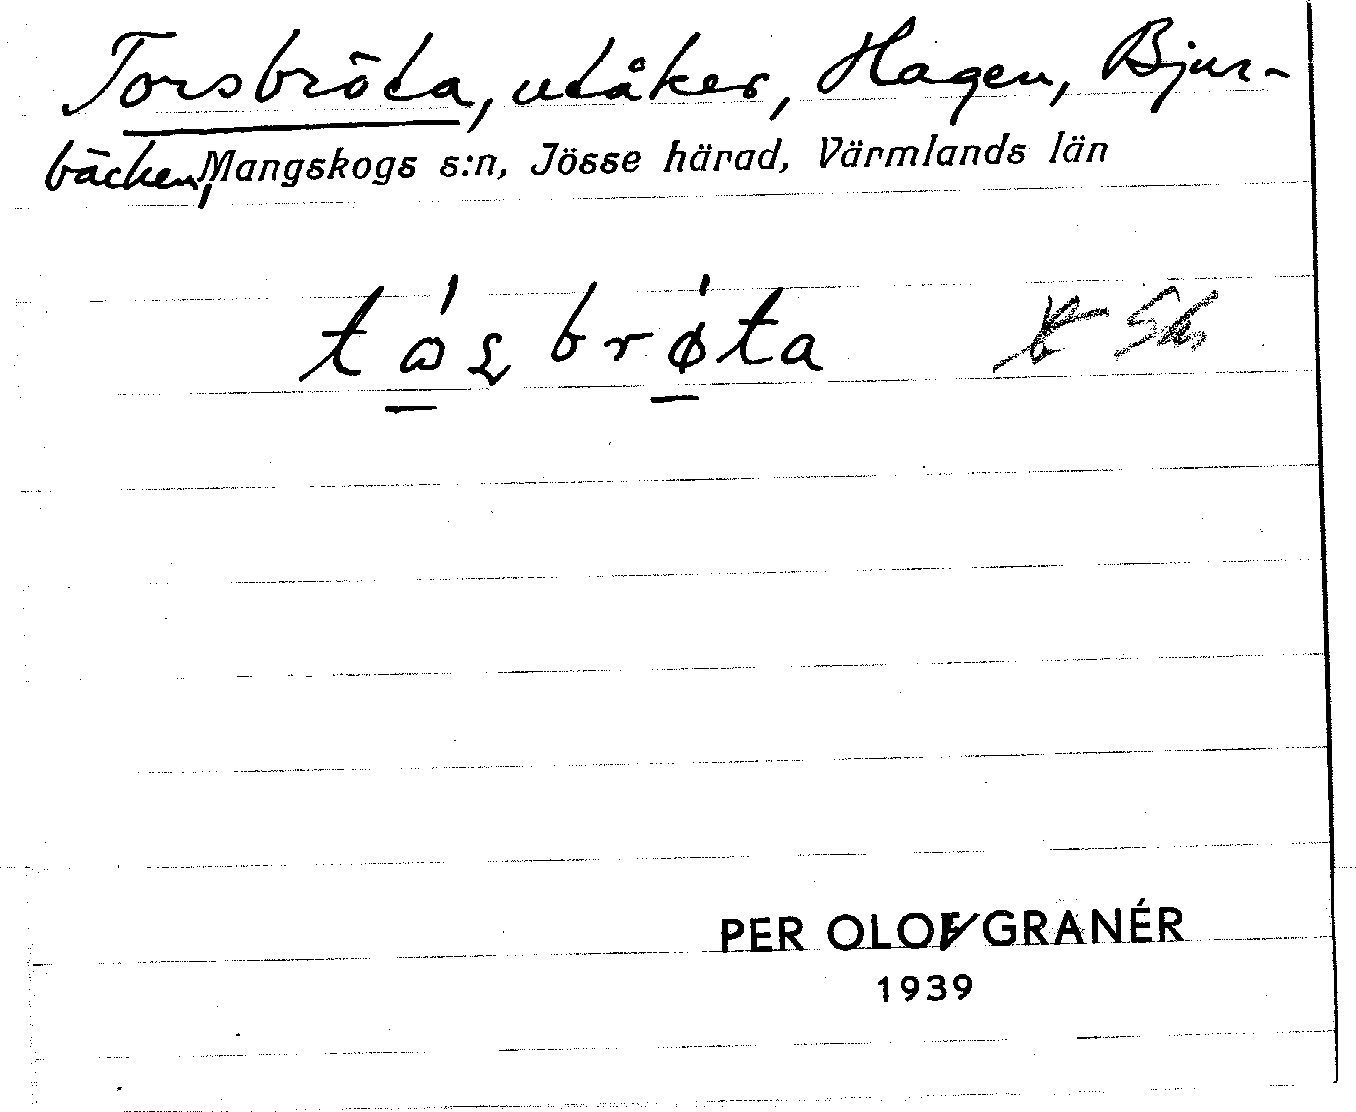 Torsbröta, utåker, Hagen, Bjur-
bäcken, Mangskogs s:n, Jösse härad, Värmlands län
tɷ́s̨brǿta
PER OLOF GRANÉR
1939